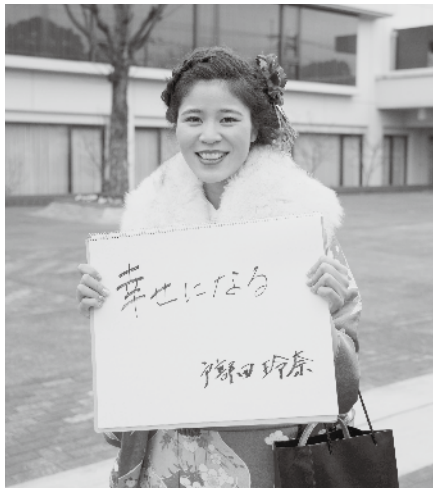 幸せになる
隈田 玲奈